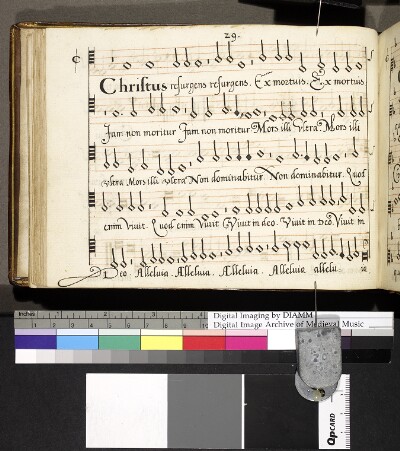 29.
Christus resurgens resurgens. Ex mortuis. Ex mortuis
Jam non moritur Jam non moritur Mors illi vltra Mors illi
vltra Mors illi vltra Non dominabitur. Non dominabitur. Quod
enim viuit. Quod enim viuit Viuit in deo. Viuit in Deo. Viuit in
Deo. Alleluia. Alleluia. Alleluia. Alleluia allelu- ia
Inches 1 2
Digital Imaging by DIAMM
Digital Image Archive of Medieval Music
QPCARD